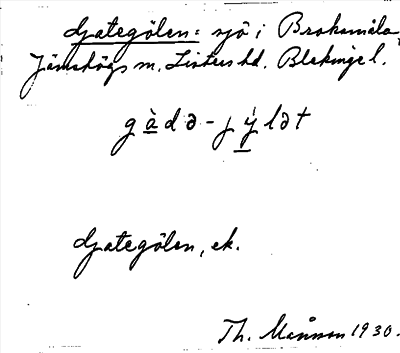 Gategölen: sjö i Brokamåla,
Jämshögs sn. Listers hd. Blekinge l.
gàdə-jýlət
Gategölen, ek.
Th. Månsson 1930.